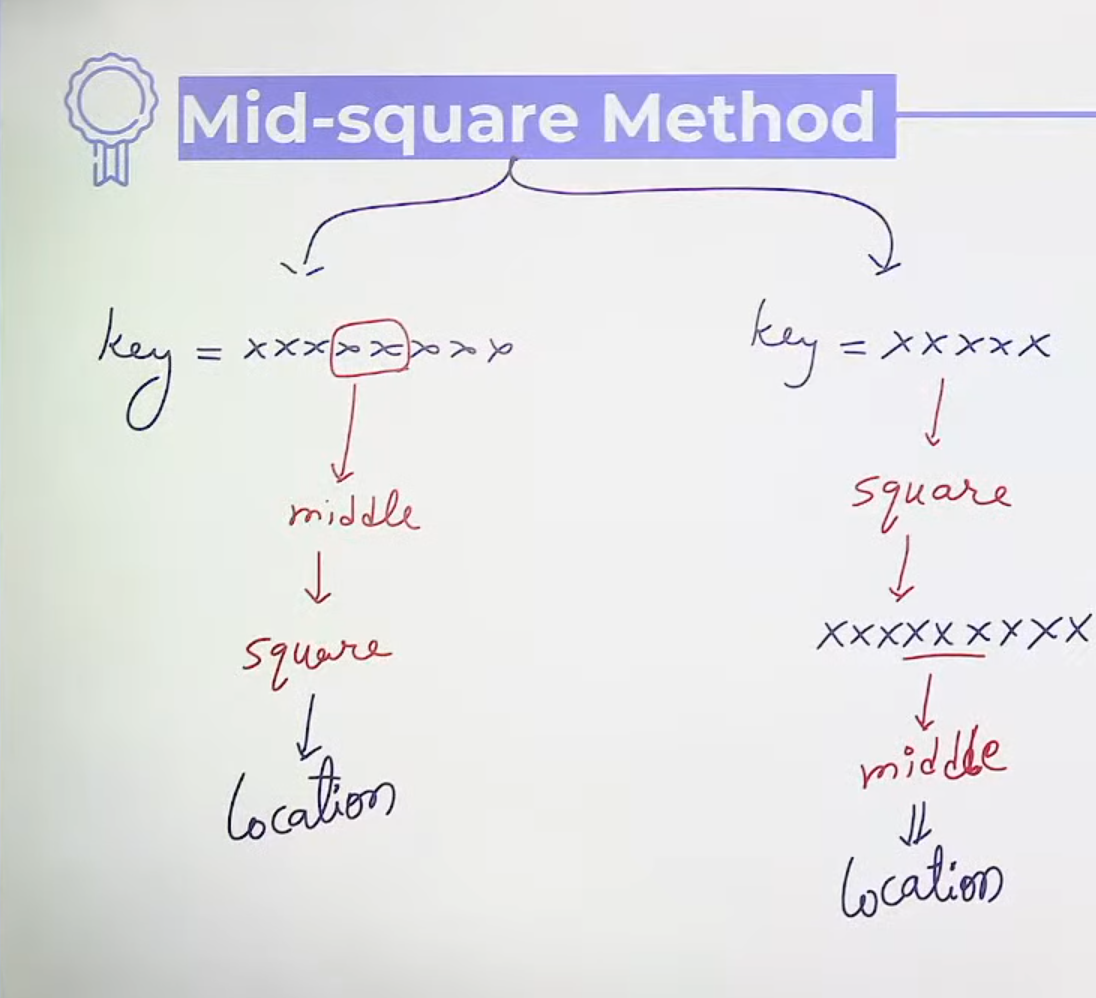 Mid-square Method
key = xxxxxxxx
middle
square
location
key = xxxxx
square
xxxxxxxxx
middle
location